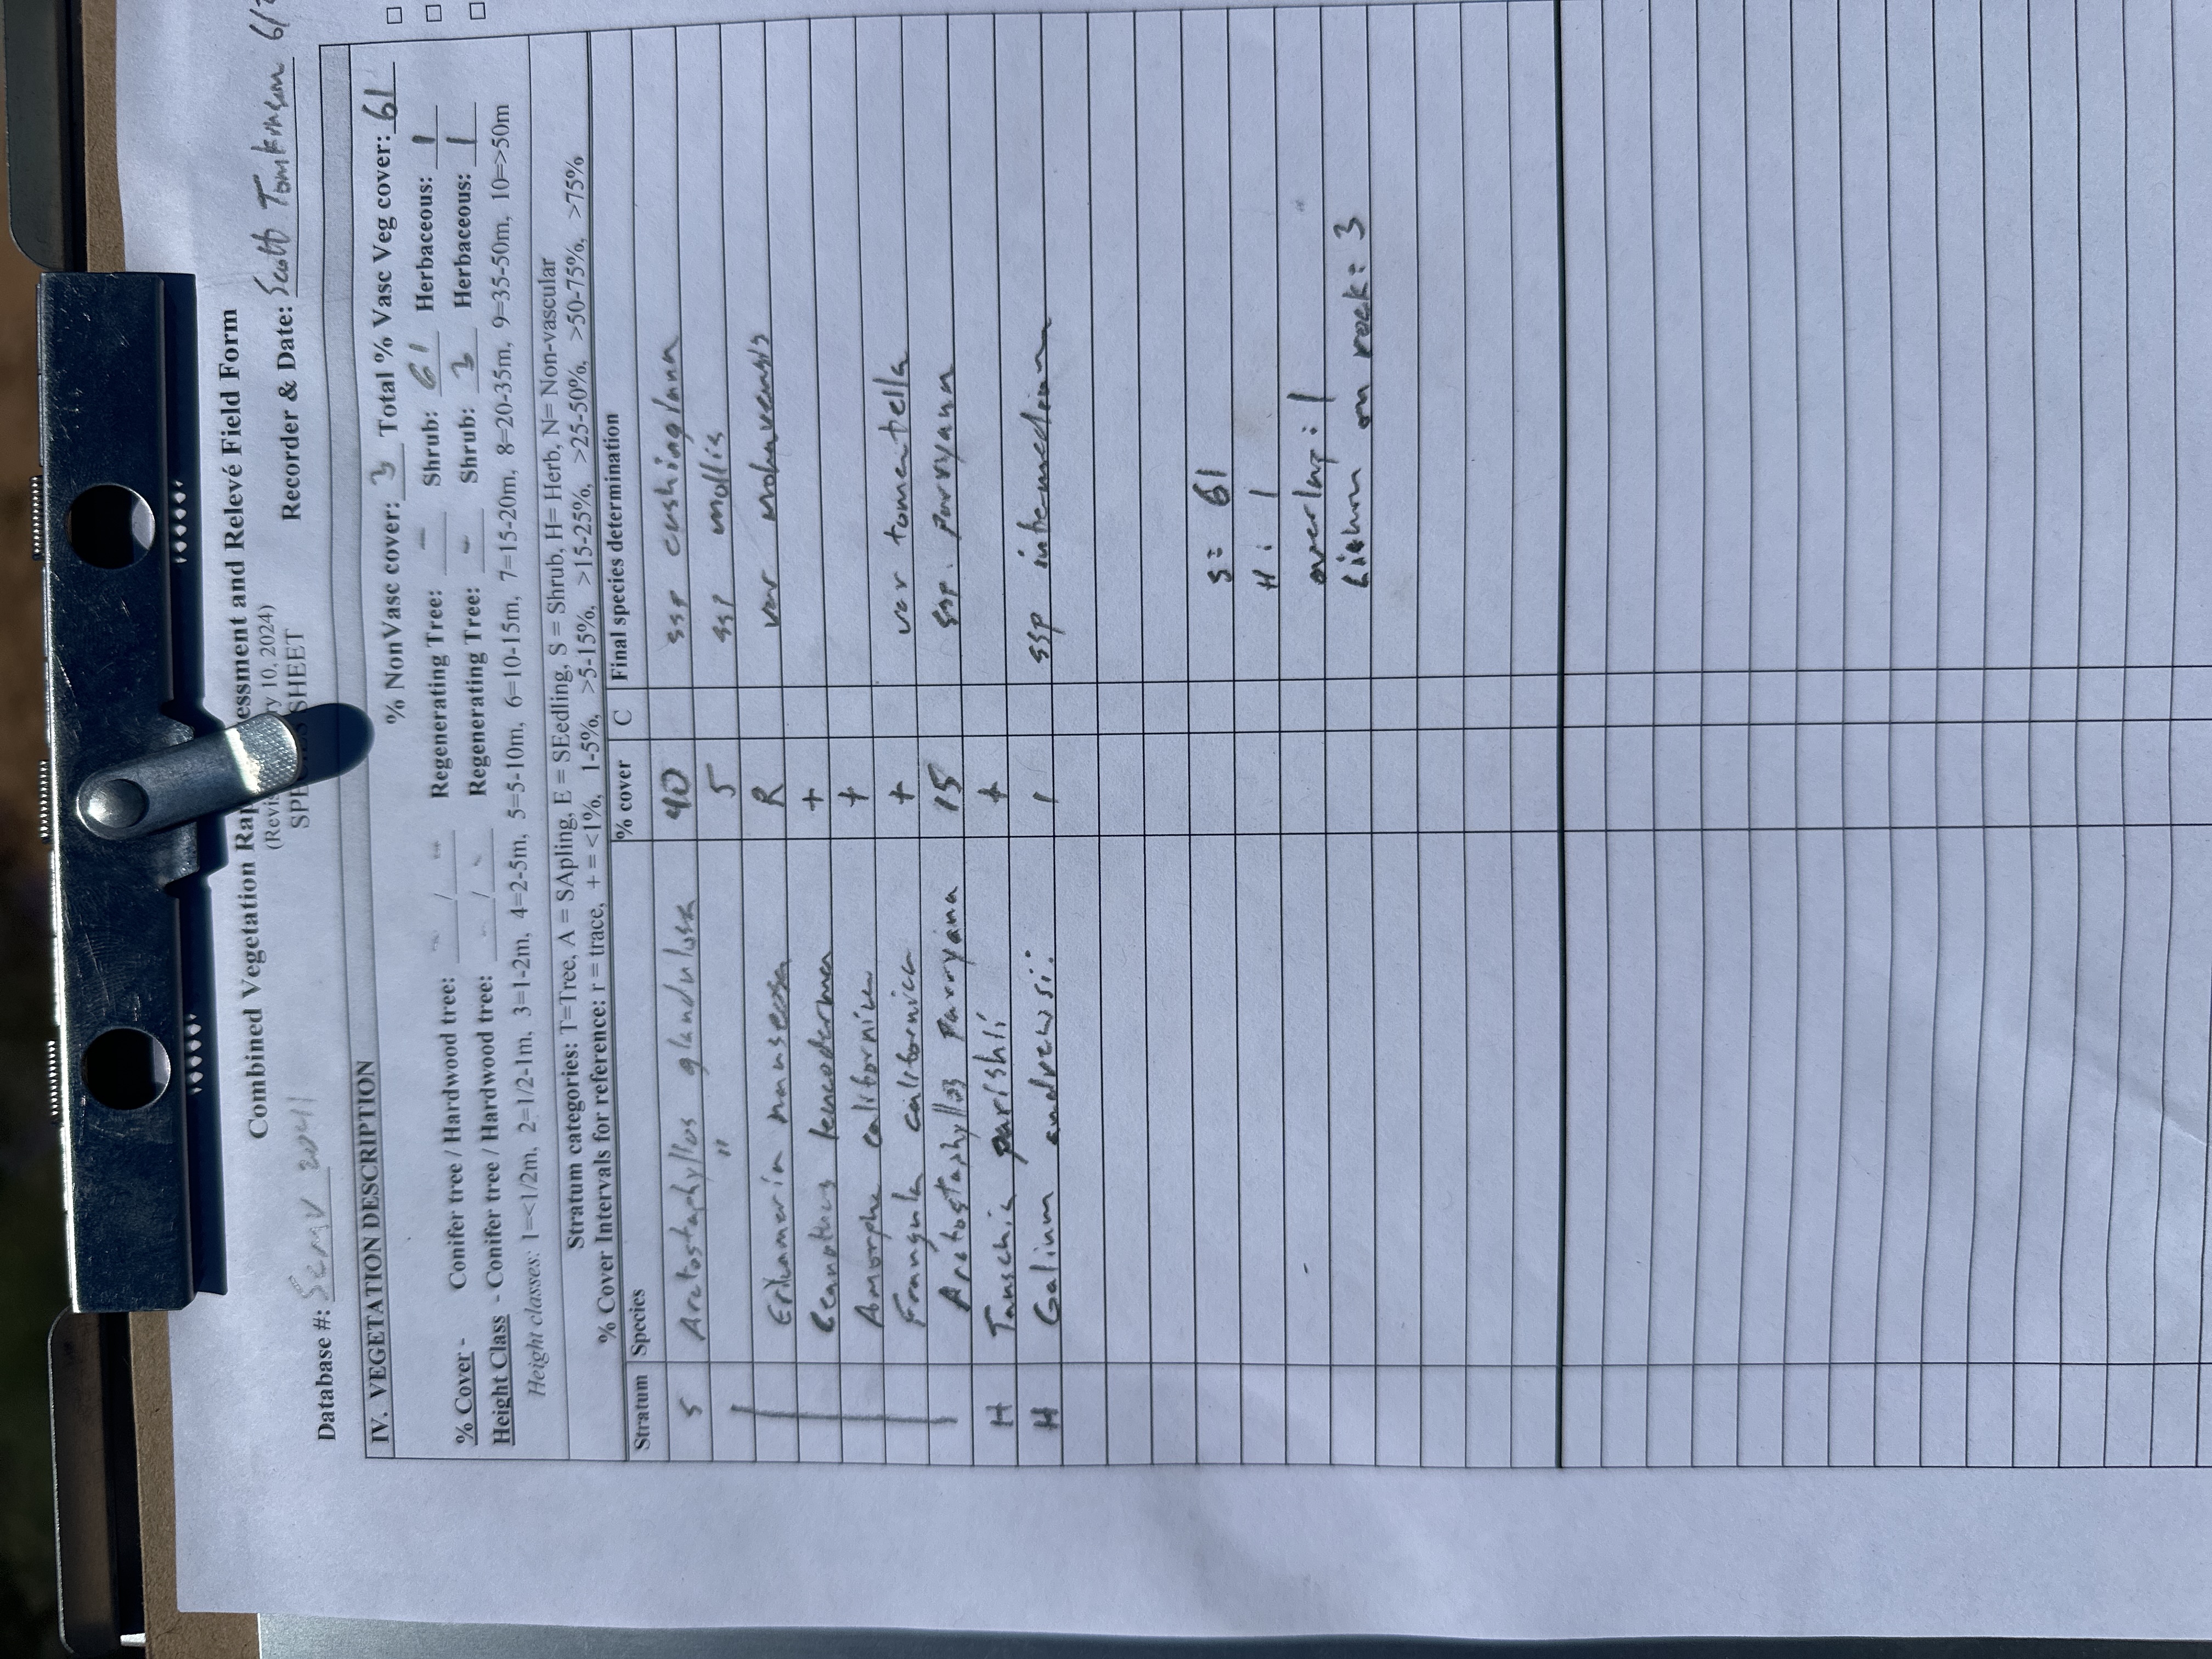 Combined Vegetation Rap essment and Relevé Field Form
(Revis ry 10, 2024)
SPE SHEET
Database #: SEMV 2041 Recorder & Date: Scott Tomkinson 6/
IV. VEGETATION DESCRIPTION
% NonVasc cover: 3 Total % Vasc Veg cover: 61
% Cover - Conifer tree / Hardwood tree: - / - Regenerating Tree: - Shrub: 61 Herbaceous: 1
Height Class - Conifer tree / Hardwood tree: - / - Regenerating Tree: - Shrub: 3 Herbaceous: 1
Height classes: 1=<1/2m, 2=1/2-1m, 3=1-2m, 4=2-5m, 5=5-10m, 6=10-15m, 7=15-20m, 8=20-35m, 9=35-50m, 10=>50m
Stratum categories: T=Tree, A = SApling, E = SEedling, S = Shrub, H= Herb, N= Non-vascular
% Cover Intervals for reference: r = trace, + = <1%, 1-5%, >5-15%, >15-25%, >25-50%, >50-75%, >75%
Stratum Species % cover C Final species determination
S Arctostaphylos glandulosa 40 ssp cushingiana
" 5 ssp mollis
Ericameria nauseosa R var mohavensis
Ceanothus leucodermis +
Amorpha californica +
Frangula californica + var tomentella
Arctostaphylos parryana 15 ssp. parryana
H Tauschia parishii +
H Galium andrewsii 1 ssp intermedium
S: 61
H: 1
overlap: 1
Lichen on rock: 3